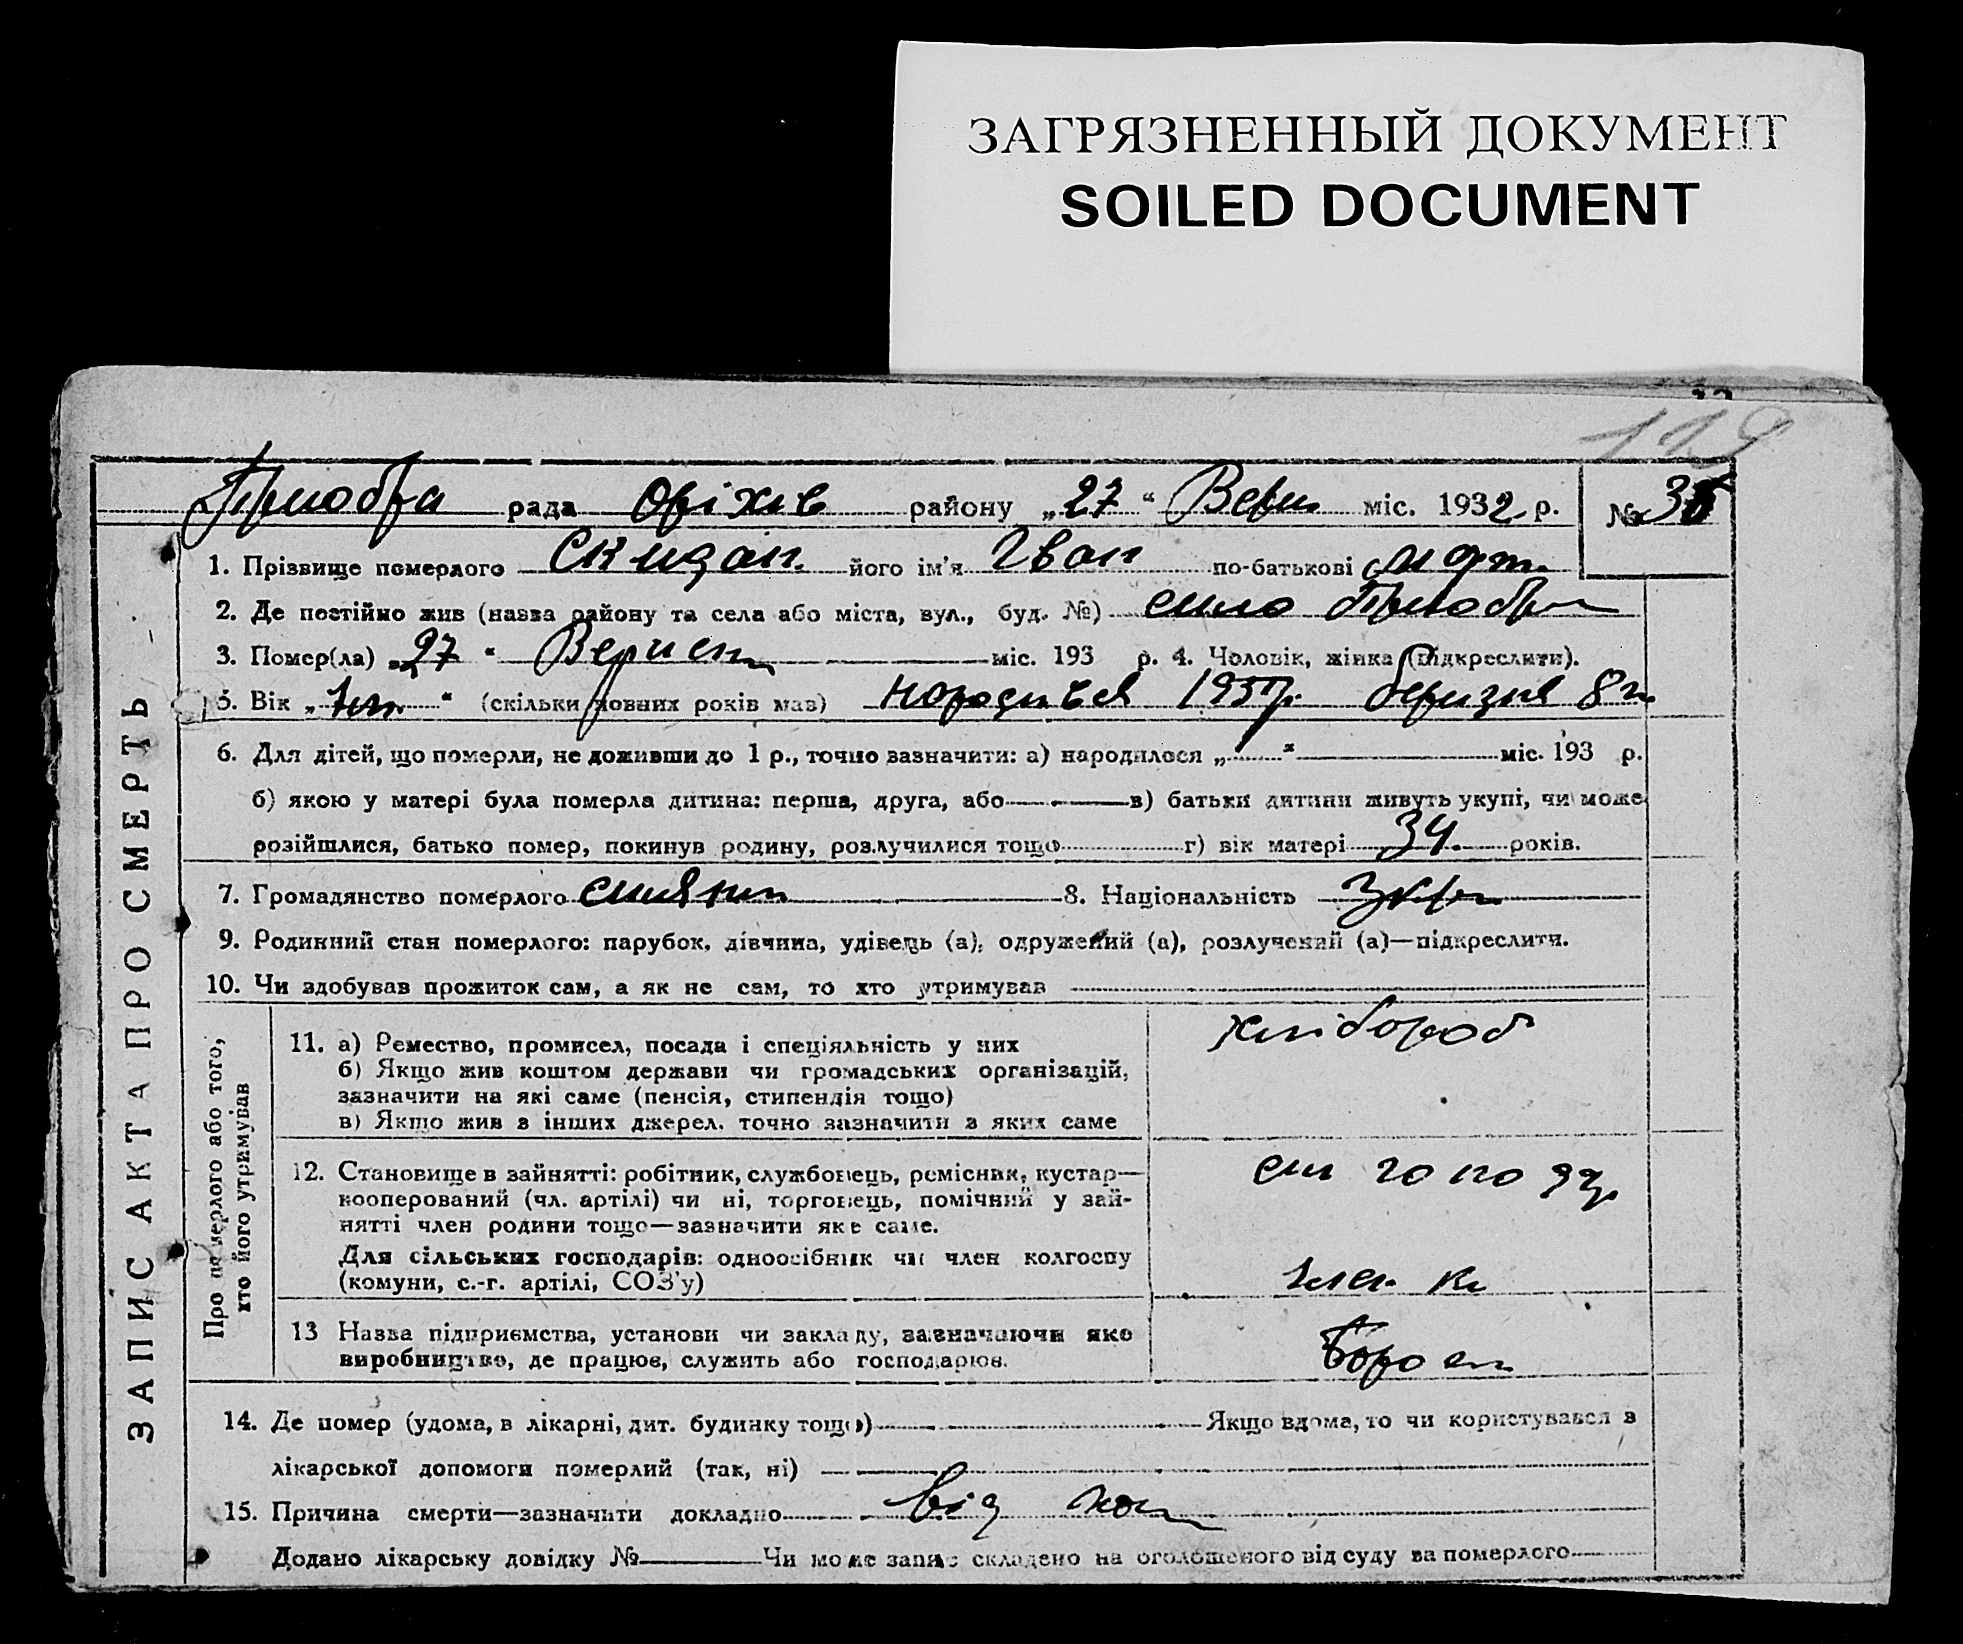 ЗАГРЯЗНЕННЫЙ ДОКУМЕНТ
SOILED DOCUMENT
119
Преобра рада Оріхів району „27“ Верш міс. 1932 р. №
1. Прізвище померлого його ім'я Іван по-батькові
2. Де постійно жив (назва району та села або міста, вул., буд. №) село Преобр
3. Помер(ла) „27“ міс. 193 р. 4. Чоловік, жінка (підкреслити).
5. Вік „ “ (скільки повних років мав) народився березня 8
6. Для дітей, що померли, не доживши до 1 р., точно зазначити: а) народилося „ “ міс. 193 р.
б) якою у матері була померла дитина: перша, друга, або в) батьки дитини живуть укупі, чи може
розійшлися, батько помер, покинув родину, розлучилися тощо г) вік матері 34 років.
7. Громадянство померлого 8. Національність Укр
9. Родинний стан померлого: парубок, дівчина, удівець (а), одружений (а), розлучений (а)—підкреслити.
10. Чи здобував прожиток сам, а як не сам, то хто утримував
ЗАПИС АКТА ПРО СМЕРТЬ
Про померлого або того,
хто його утримував
11. а) Ремество, промисел, посада і спеціяльність у них хлібороб
б) Якщо жив коштом держави чи громадських організацій,
зазначити на які саме (пенсія, стипендія тощо)
в) Якщо жив з інших джерел, точно зазначити з яких саме
12. Становище в зайнятті: робітник, службовець, ремісник, кустар—
кооперований (чл. артілі) чи ні, торговець, помічний у зай-
нятті член родини тощо—зазначити яке саме.
Для сільських господарів: одноосібник чи член колгоспу
(комуни, с.-г. артілі, СОЗ'у) член к
13 Назва підприємства, установи чи закладу, зазначаючи яке
виробництво, де працює, служить або господарює.
14. Де помер (удома, в лікарні, дит. будинку тощо) Якщо вдома, то чи користувався з
лікарської допомоги померлий (так, ні)
15. Причина смерти—зазначити докладно від
Додано лікарську довідку № Чи може запис складено на оголошеного від суду за померлого